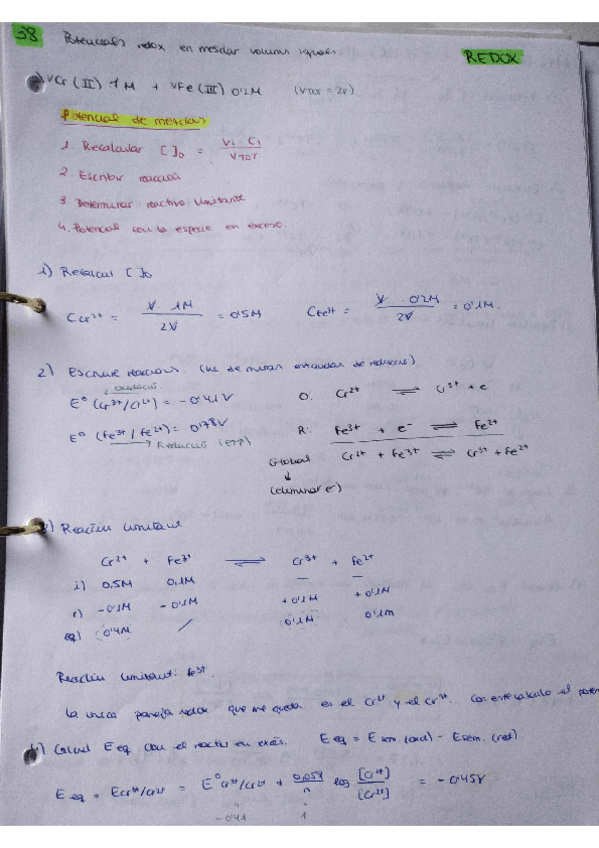 38 Potencials redox en mesclar volums iguals
REDOX
a) VCr (II) 1M + VFe (III) 0'2M (VTOT = 2V)
Potencial de mesclas
1. Recalcular [ ]o = Vi · Ci / VTOT
2. Escribir reacción
3. Determinar reactivo limitante
4. Potencial con la especie en exceso.
1) Recalcul [ ]o
CCr2+ = V · 1M / 2V = 0'5M CFe3+ = V · 0'2M / 2V = 0'1M.
2) Escriure reaccions. (he de mirar estandar de reduccio)
oxidació
E° (Cr3+/Cr2+) = - 0'41V O: Cr2+ ⇌ Cr3+ + e
E° (Fe3+/Fe2+) = 0'78V R: Fe3+ + e- ⇌ Fe2+
Reducció
Global Cr2+ + Fe3+ ⇌ Cr3+ + Fe2+
(eliminar e-)
3) Reactiu limitant
Cr2+ + Fe3+ ⇌ Cr3+ + Fe2+
i) 0.5M 0.1M — —
r) -0'1M -0'1M +0'1M +0'1M
eq) 0'4M / 0'1M 0'1m
Reactiu limitant: Fe3+
La unica pareja redox que me queda es el Cr2+ y el Cr3+. Con este calculo el poten
4) Calcul E eq con el reactiu en excés. E eq = E sem. (oxid) - E sem. (red)
E eq = E Cr3+/Cr2+ = E° Cr3+/Cr2+ + 0,059/n log [Cr3+]/[Cr2+] = - 0'45V
-0'41 1